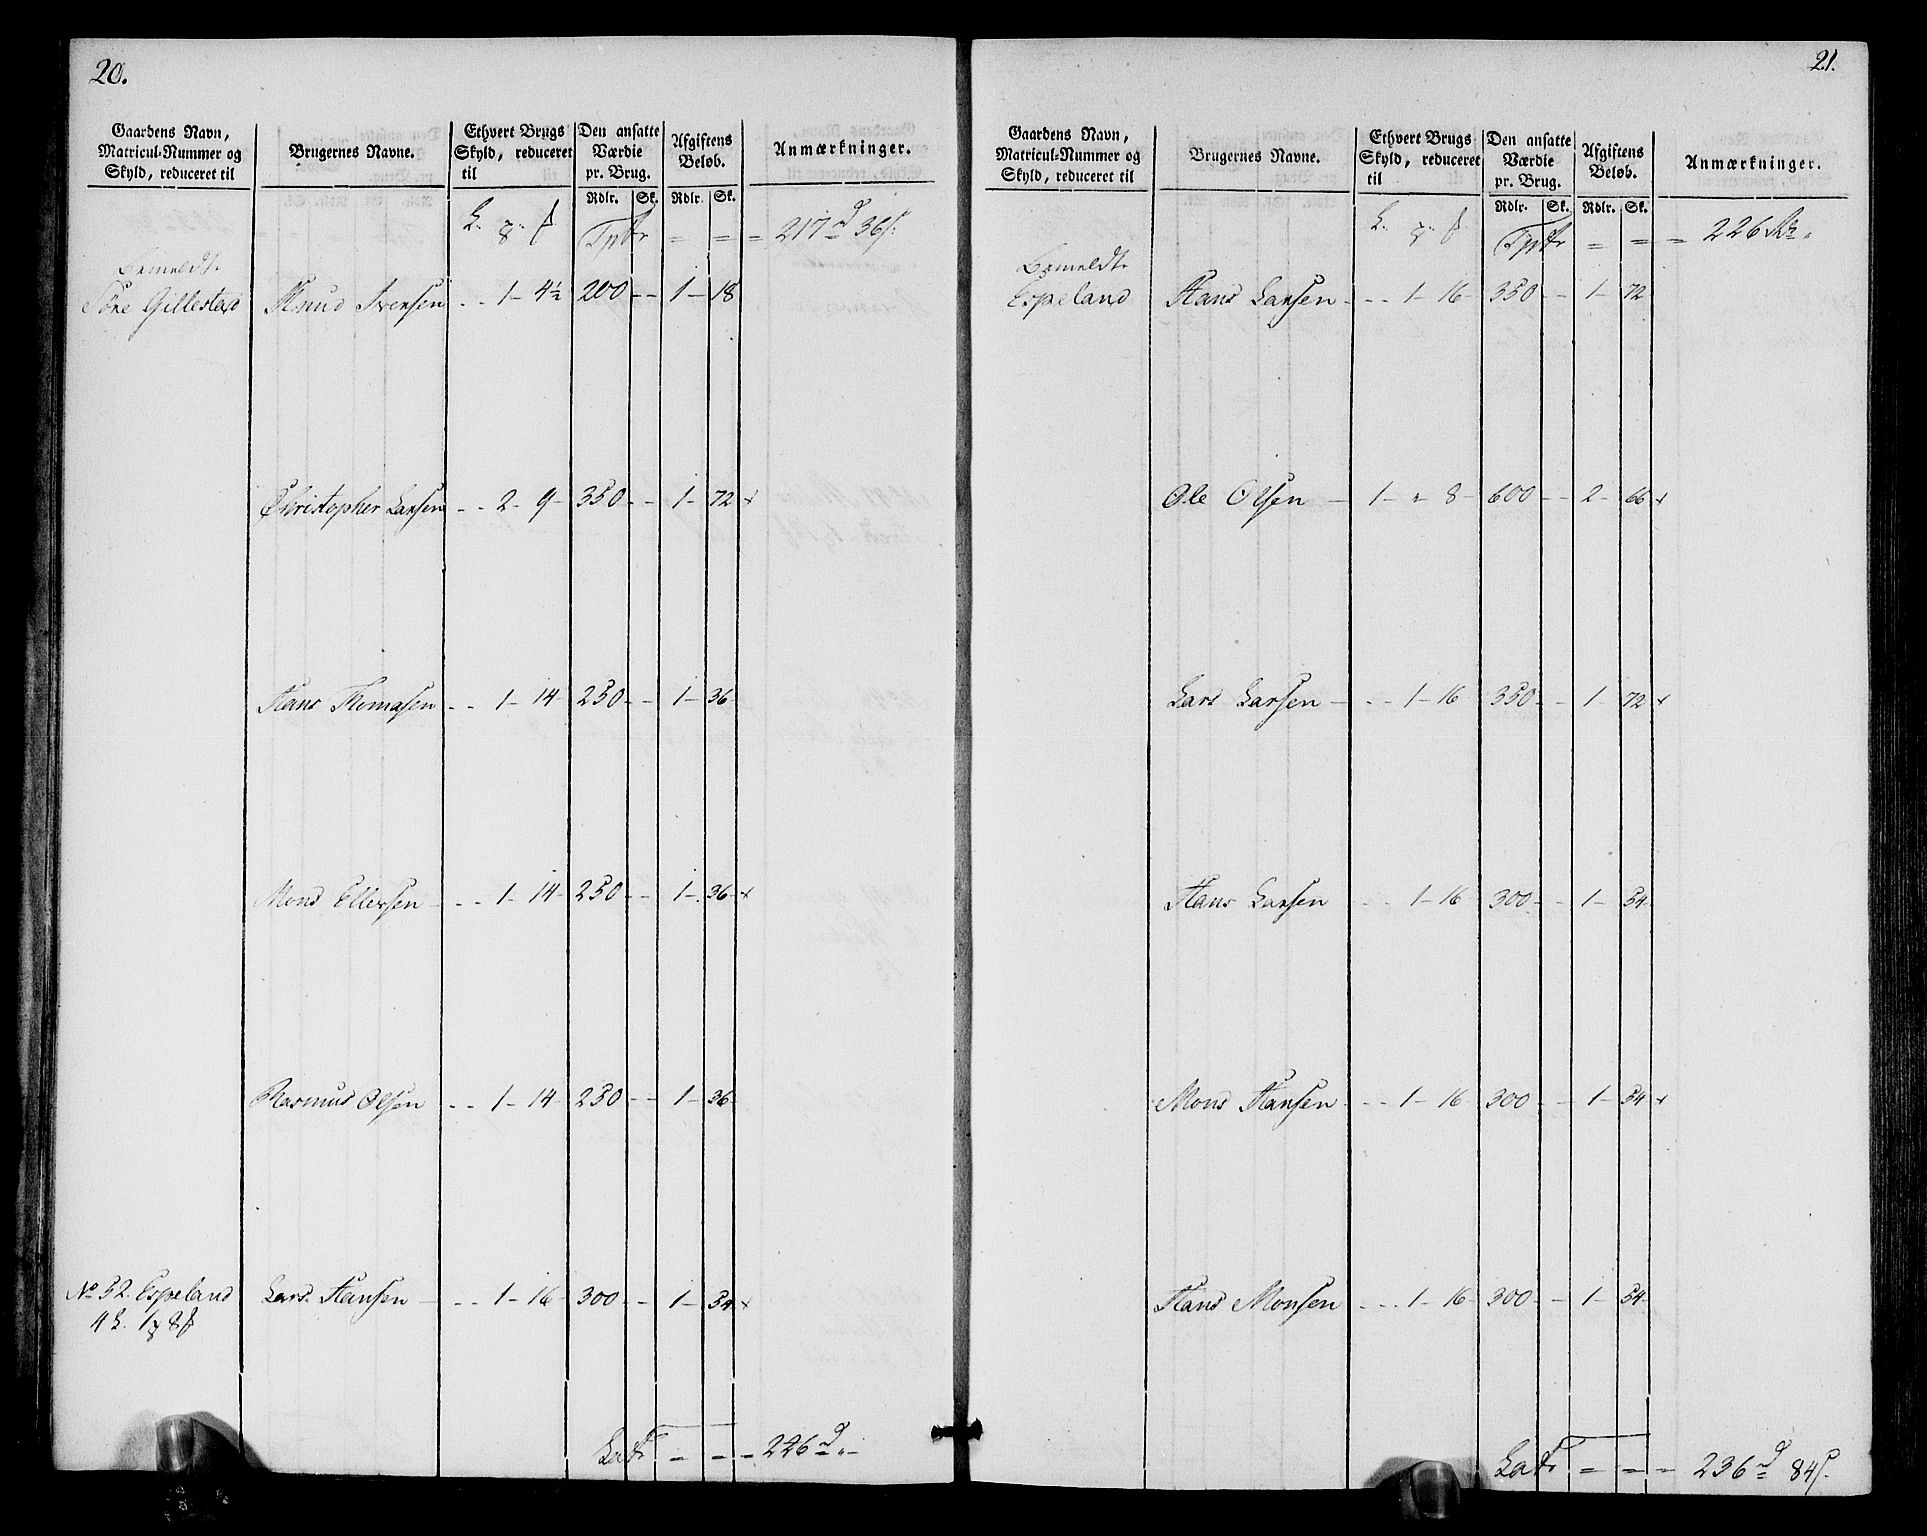 20.
Gaardens Navn, Matricul-Nummer og Skyld, reduceret til
Brugernes Navne.
Ethvert Brugs Skyld, reduceret til
Den ansatte Værdie pr. Brug.
Afgiftens Beløb.
Anmærkninger.
Rdlr. Sk. Rdlr. Sk.
Tptr = = = 217 d 36 s.
Bemeldt
Søre Gillestad Knud Iversen - - 1 - 4½ 200 - - 1 - 18
Christopher Larsen - - 2 - 9 - 350 - - 1 - 72 x
Hans Thomasen - - 1 - 14 - 250 - - 1 - 36 -
Mons Ellersen - - - 1 - 14 - 250 - - 1 - 36 - x
Rasmus Olsen - - 1 - 14 - 250 - - 1 - 36 -
No 32. Espeland Lars Hansen - - - 1 - 16 - 300 - - 1 - 54 x
4 L. 1 8
Latr = = = 226 d " -
21.
Gaardens Navn, Matricul-Nummer og Skyld, reduceret til
Brugernes Navne.
Ethvert Brugs Skyld, reduceret til
Den ansatte Værdie pr. Brug.
Afgiftens Beløb.
Anmærkninger.
Rdlr. Sk. Rdlr. Sk.
Tptr = = = 226
Bemeldt
Espeland Hans Larsen - - - 1 - 16 - 350 - - 1 - 72
Ole Olsen - 1 - " 8 - 600 - - 2 - 66 x
Lars Larsen - - - 1 - 16 350 - - 1 - 72 x
Hans Larsen - - 1 - 16 300 - - 1 - 54
Mons Hansen - - - 1 - 16 300 - - 1 - 54 x
Hans Monsen - - - 1 - 16 - 300 - - 1 - 54 -
Latr = = = 236 d 84 s.